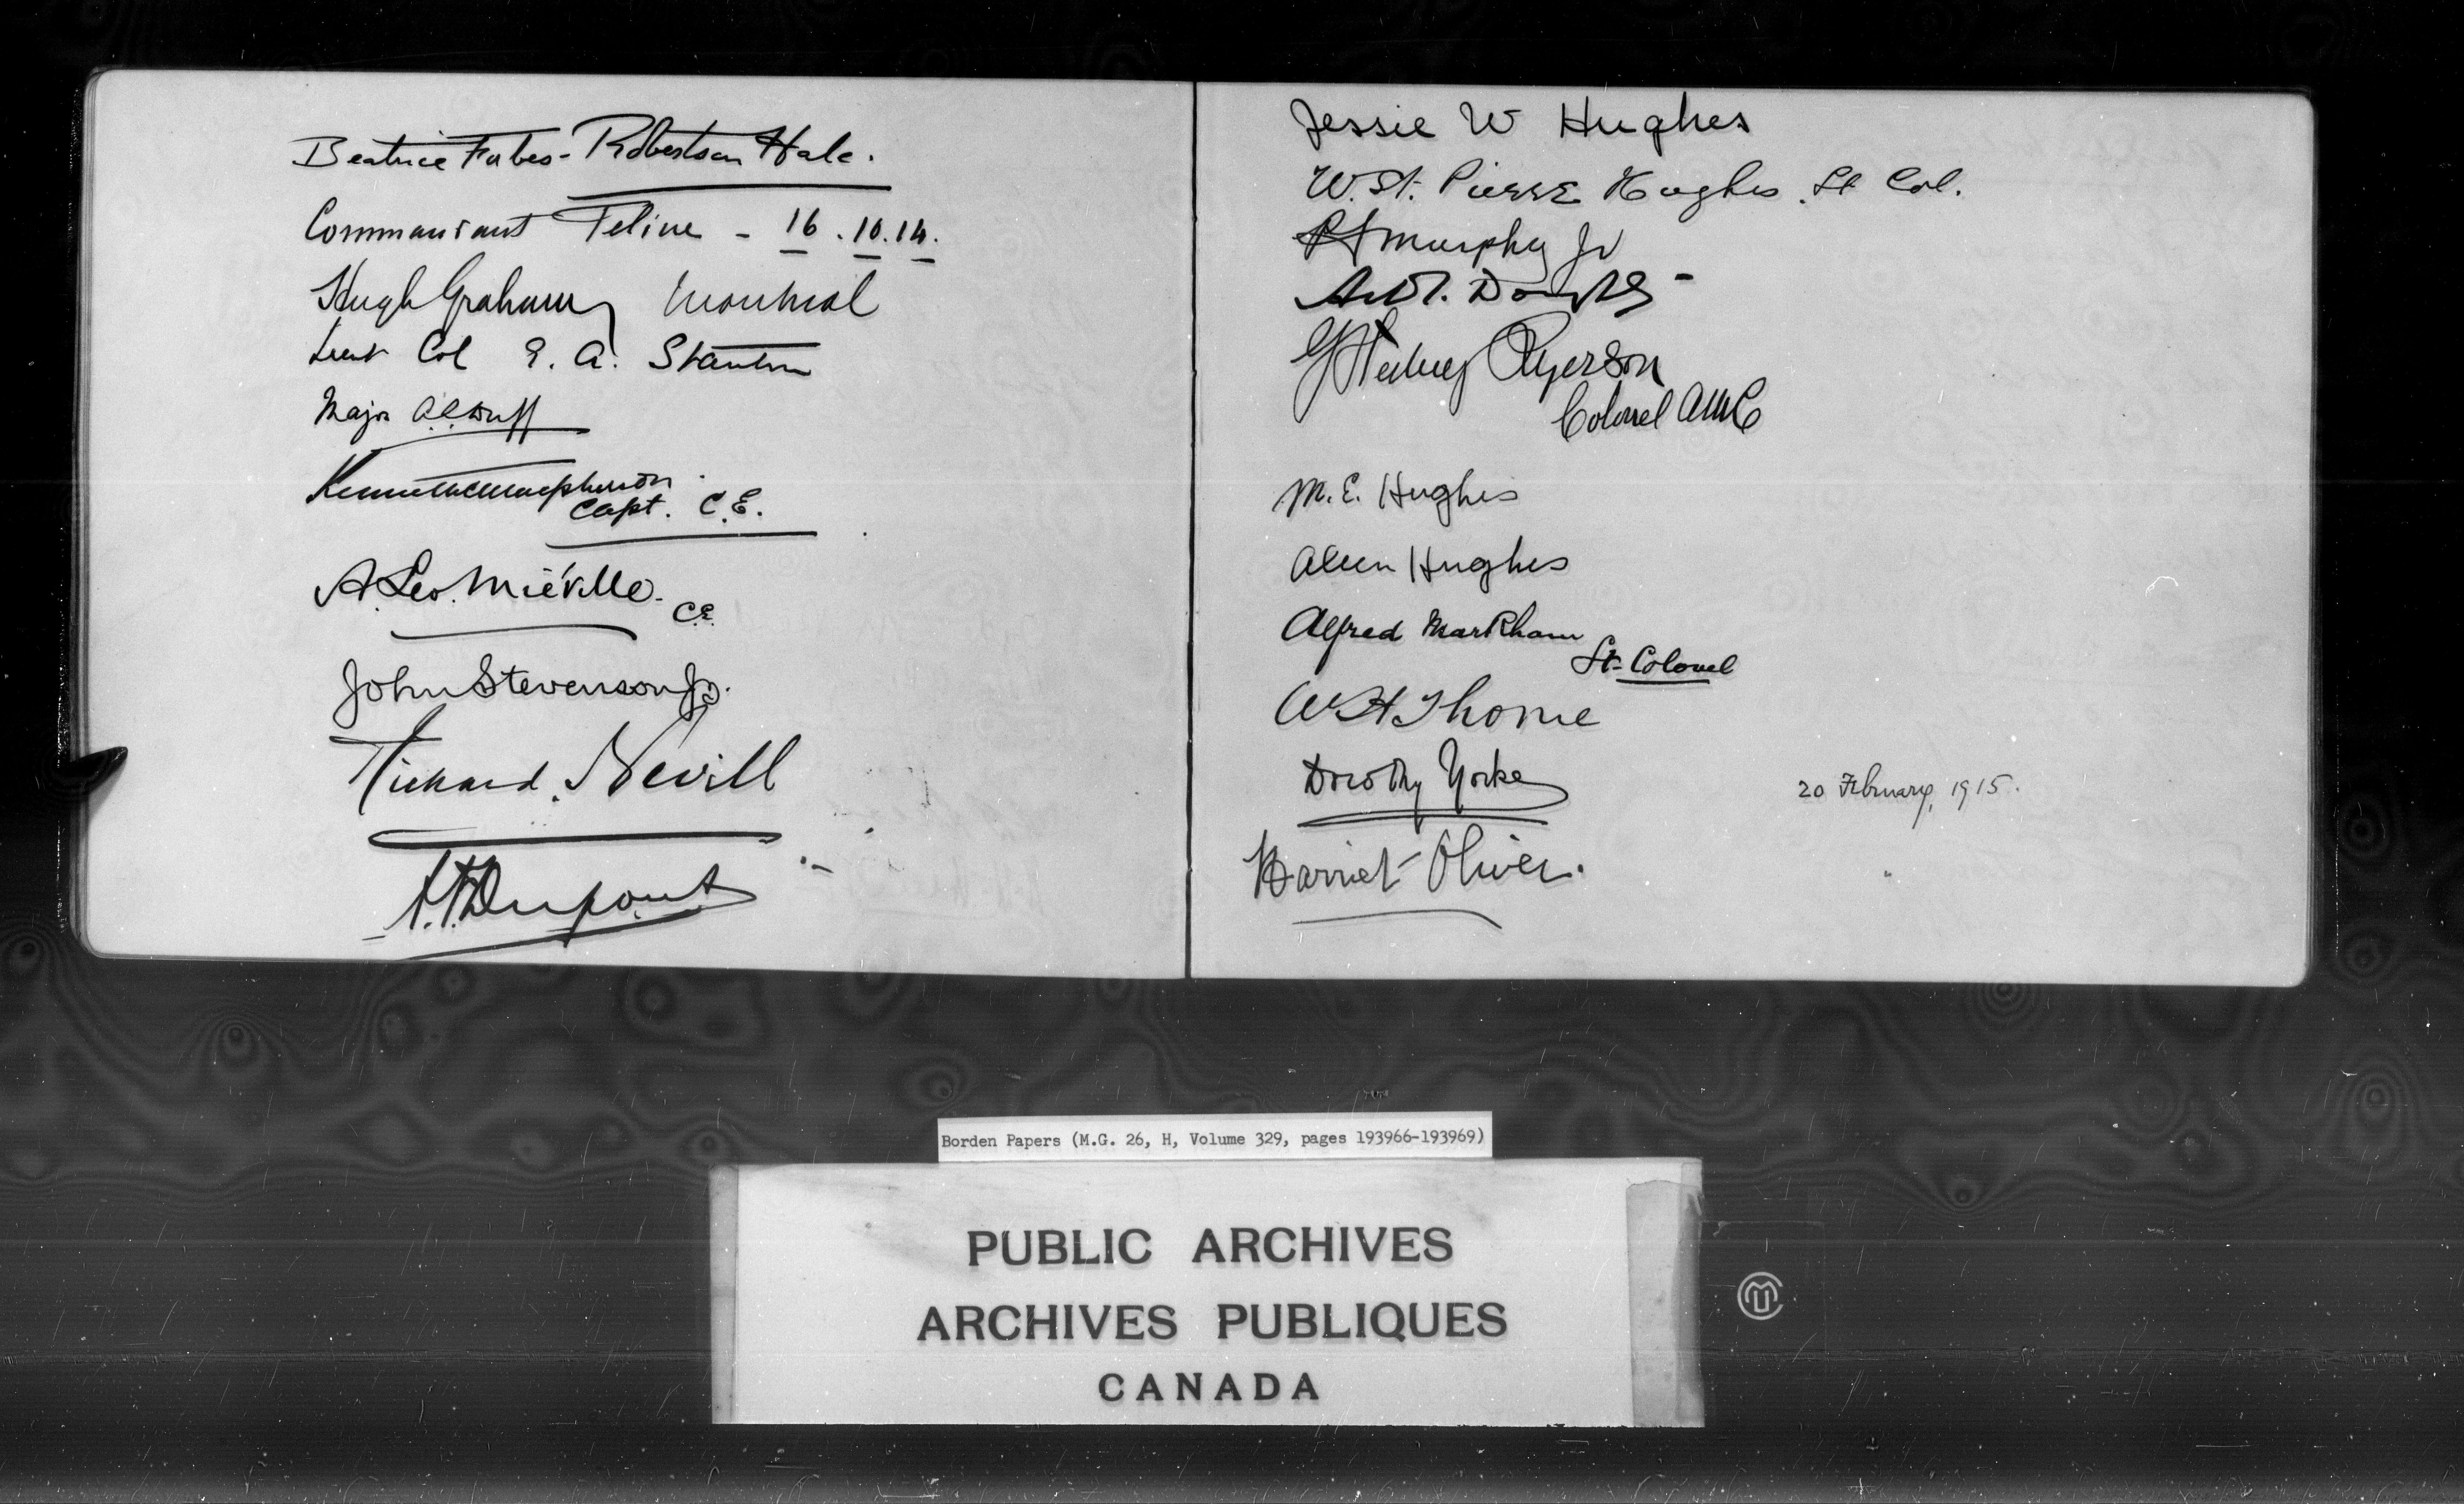 Beatrice Forbes-Robertson Hale.
Commandant Feline - 16.10.14.
Hugh Graham Montreal
Lieut Col E. A. Stanton
Major A.C. Duff
Kenneth Macpherson
Capt. C.E.
A. Leo. Miéville. C.E.
John Stevenson Jr.
Richard. Nevill
Dupont
Jessie W Hughes
W. St. Pierre Hughes. Lt Col.
Murphy Jr
Ryerson
Colonel AMC
M. E. Hughes
Aleen Hughes
Alfred Markham
Lt-Colonel
W H Thorne
Dorothy Yorke 20 February, 1915.
Harriet Oliver.
Borden Papers (M.G. 26, H, Volume 329, pages 193966-193969)
PUBLIC ARCHIVES
ARCHIVES PUBLIQUES
CANADA